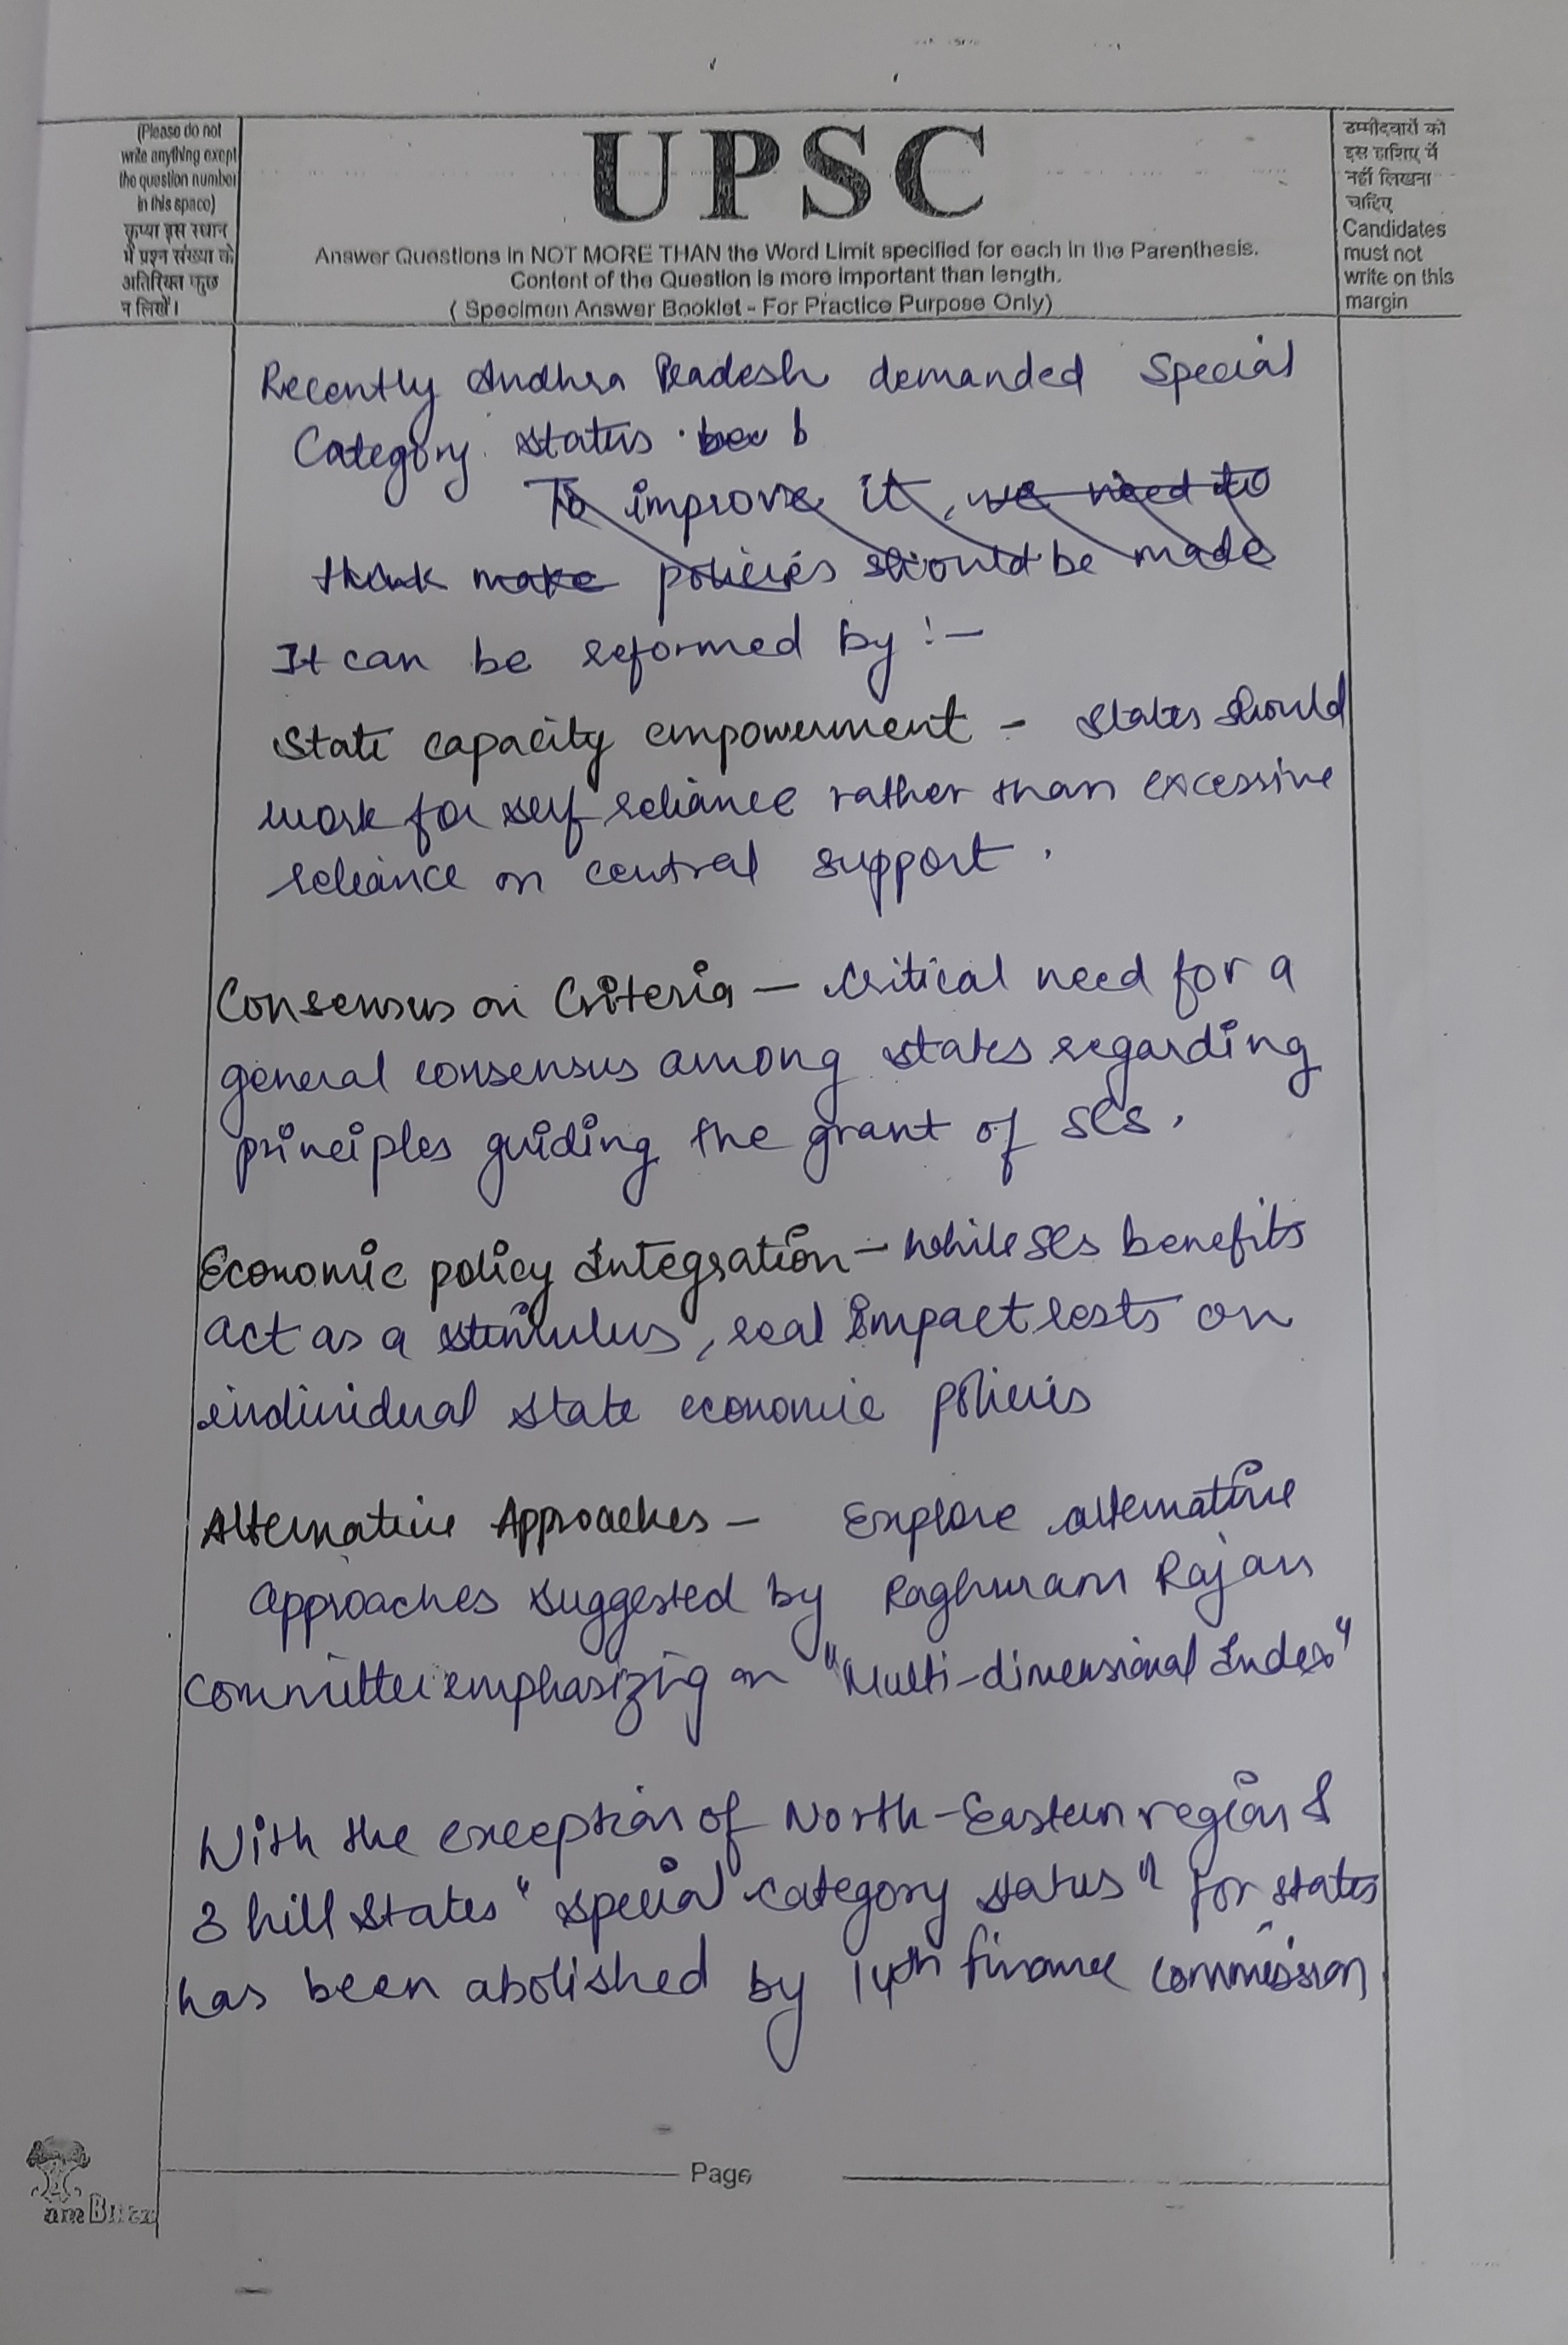 (Please do not
write anything exept
the question number
in this space)
कृप्या इस स्थान
में प्रश्न संख्या के
अतिरिक्त कुछ
न लिखें।
UPSC
Answer Questions in NOT MORE THAN the Word Limit specified for each in the Parenthesis.
Content of the Question is more important than length.
( Specimen Answer Booklet - For Practice Purpose Only)
उम्मीदवारों को
इस हाशिए में
नहीं लिखना
चाहिए
Candidates
must not
write on this
margin
Recently Andhra Pradesh demanded Special
Category status. bec b
To improve it, we need to
think make policies should be made
It can be reformed by :-
State capacity empowerment - States should
work for self reliance rather than excessive
reliance on central support.
Consensus on Criteria - Critical need for a
general consensus among states regarding
principles guiding the grant of SCS.
Economic policy Integration - While SCS benefits
act as a stimulus, real impact rests on
individual state economic policies
Alternative Approaches - Explore alternative
approaches suggested by Raghuram Rajan
committee emphasizing on "Multi-dimensional Index"
With the exception of North-Eastern region &
3 hill states "special category status" for states
has been abolished by 14th finance commission
Page